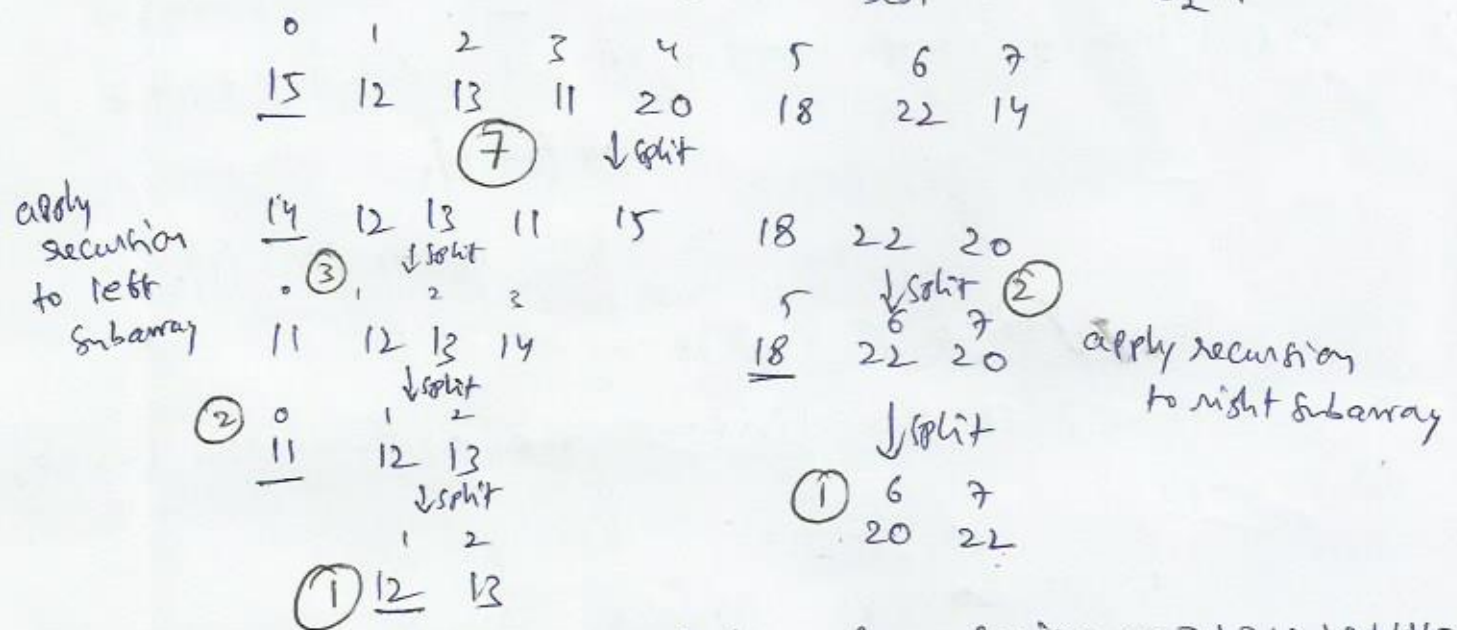 0 1 2 3 4 5 6 7
15 12 13 11 20 18 22 14
7 ↓ split
apply recursion to left subarray
14 12 13 11 15 18 22 20
3 ↓ split ↓ split 2
0 1 2 3 5 6 7
11 12 13 14 18 22 20
apply recursion to right subarray
↓ split ↓ split
2 0 1 2
11 12 13
1 6 7
20 22
↓ split
1 2
1 12 13